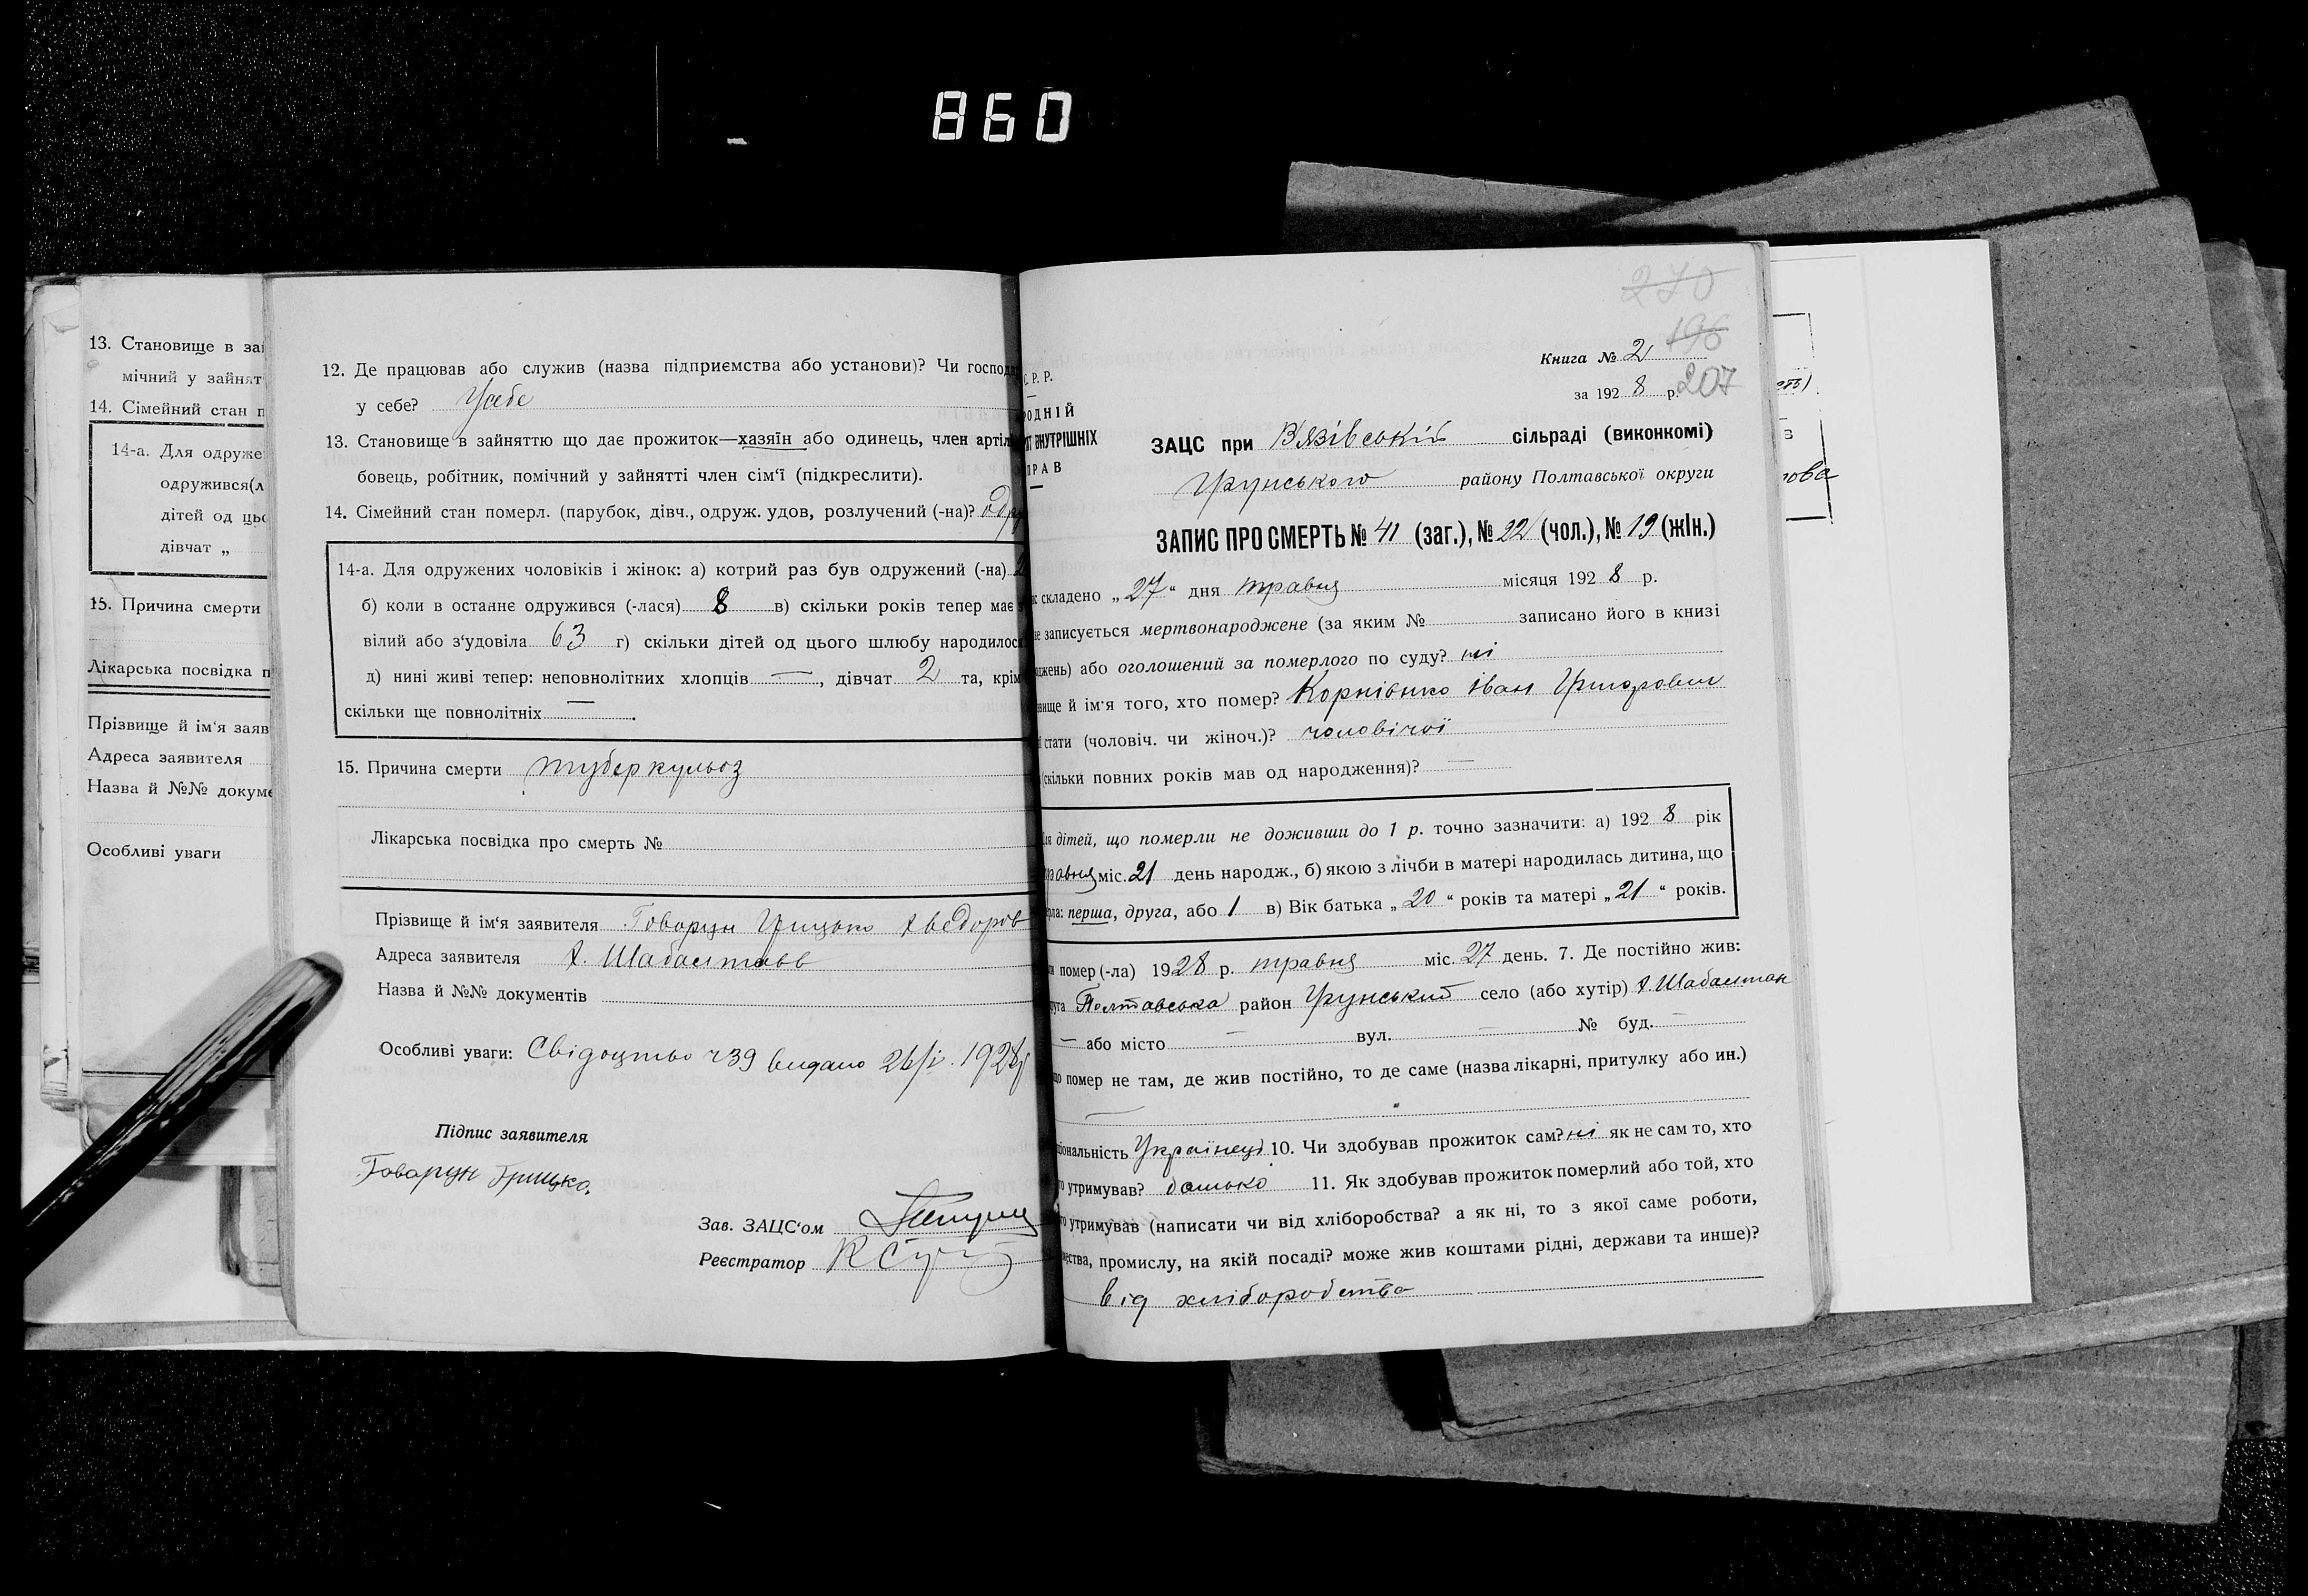 860
13. Становище в за
мічний у зайнят
14. Сімейний стан п
14-а. Для одруже
одружився(л
дітей од ць
дівчат „
15. Причина смерти
Лікарська посвідка п
Прізвище й ім'я заяв
Адреса заявителя
Назва й №№ докуме
Особливі уваги
12. Де працював або служив (назва підприємства або установи)? Чи господа
у себе? Усебе
13. Становище в зайняттю що дає прожиток—хазяїн або одинець, член артіл
бовець, робітник, помічний у зайнятті член сім'ї (підкреслити).
14. Сімейний стан померл. (парубок, дівч., одруж. удов, розлучений (-на)? одру
14-а. Для одружених чоловіків і жінок: а) котрий раз був одружений (-на)
б) коли в останнє одружився (-лася) 8 в) скільки років тепер має
вілий або з'удовіла 63 г) скільки дітей од цього шлюбу народилос
д) нині живі тепер: неповнолітних хлопців —, дівчат 2 та, крім
скільки ще повнолітніх —.
15. Причина смерти туберкульоз
Лікарська посвідка про смерть №
Прізвище й ім'я заявителя Говорун Грицько Хведоров
Адреса заявителя х. Шабалтавв
Назва й №№ документів
Особливі уваги: Свідоцтво ч39 видано 26/V. 1928р
Підпис заявителя
Говорун Грицко.
Зав. ЗАЦС'ом
Реєстратор
270
196
207
С. Р. Р.
РОДНІЙ
ЯТ ВНУТРІШНІХ
ПРАВ
Книга № 2
за 192 8 р.
ЗАЦС при Вязівській сільраді (виконкомі)
Грунського району Полтавської округи
ЗАПИС ПРО СМЕРТЬ № 41 (заг.), № 22 (чол.), № 19 (жін.)
с складено „27“ дня травня місяця 192 8 р.
е записується мертвонароджене (за яким № записано його в книзі
джень) або оголошений за померлого по суду? ні
вище й ім'я того, хто помер? Корнієнко Іван Григорович
стати (чоловіч. чи жіноч.)? чоловічої
(скільки повних років мав од народження)? —
ля дітей, що померли не доживши до 1 р. точно зазначити: а) 192 8 рік
травня міс. 21 день народж., б) якою з лічби в матері народилась дитина, що
рла: перша, друга, або 1 в) Вік батька „20“ років та матері „21“ років.
и помер (-ла) 1928 р. травня міс. 27 день. 7. Де постійно жив:
руга Полтавська район Грунський село (або хутір) х. Шабалтан
— або місто — вул. — № буд. —
що помер не там, де жив постійно, то де саме (назва лікарні, притулку або ин.)
—
ціональність Українець 10. Чи здобував прожиток сам? ні як не сам то, хто
о утримував? батько 11. Як здобував прожиток померлий або той, хто
о утримував (написати чи від хліборобства? а як ні, то з якої саме роботи,
ества, промислу, на якій посаді? може жив коштами рідні, держави та инше)?
від хліборобства